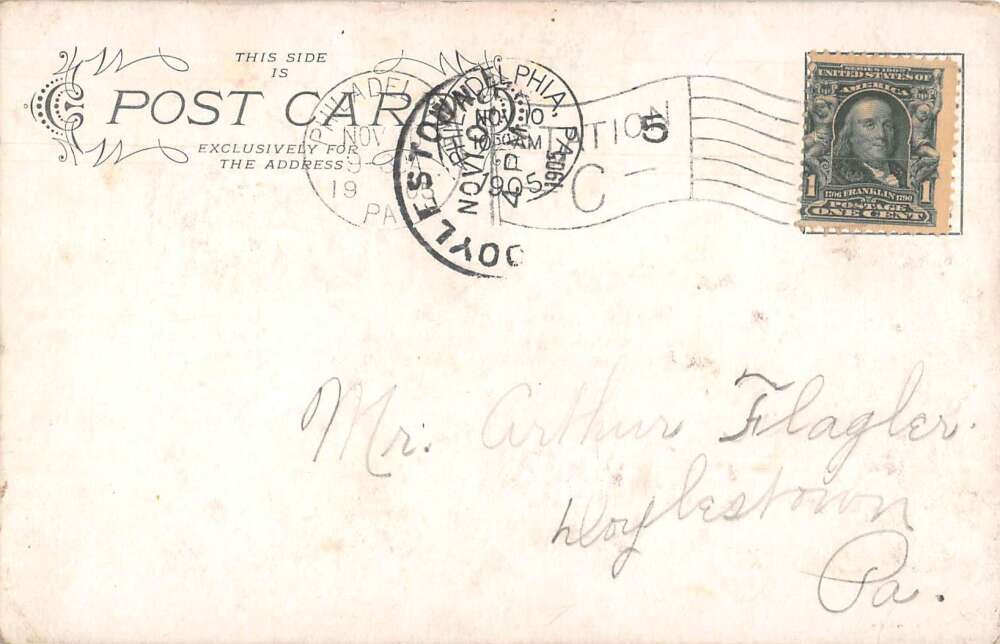 THIS SIDE
IS
POST CARD
EXCLUSIVELY FOR
THE ADDRESS
PHILADELPHIA, PA.
NOV 10
AM
1905
DOYLESTOWN
NOV
PM
STATION
C
5
SERIES 1902
UNITED STATES OF
AMERICA
1 1
1706 FRANKLIN 1790
POSTAGE
ONE CENT
Mr. Arthur Flagler.
Doylestown
Pa.